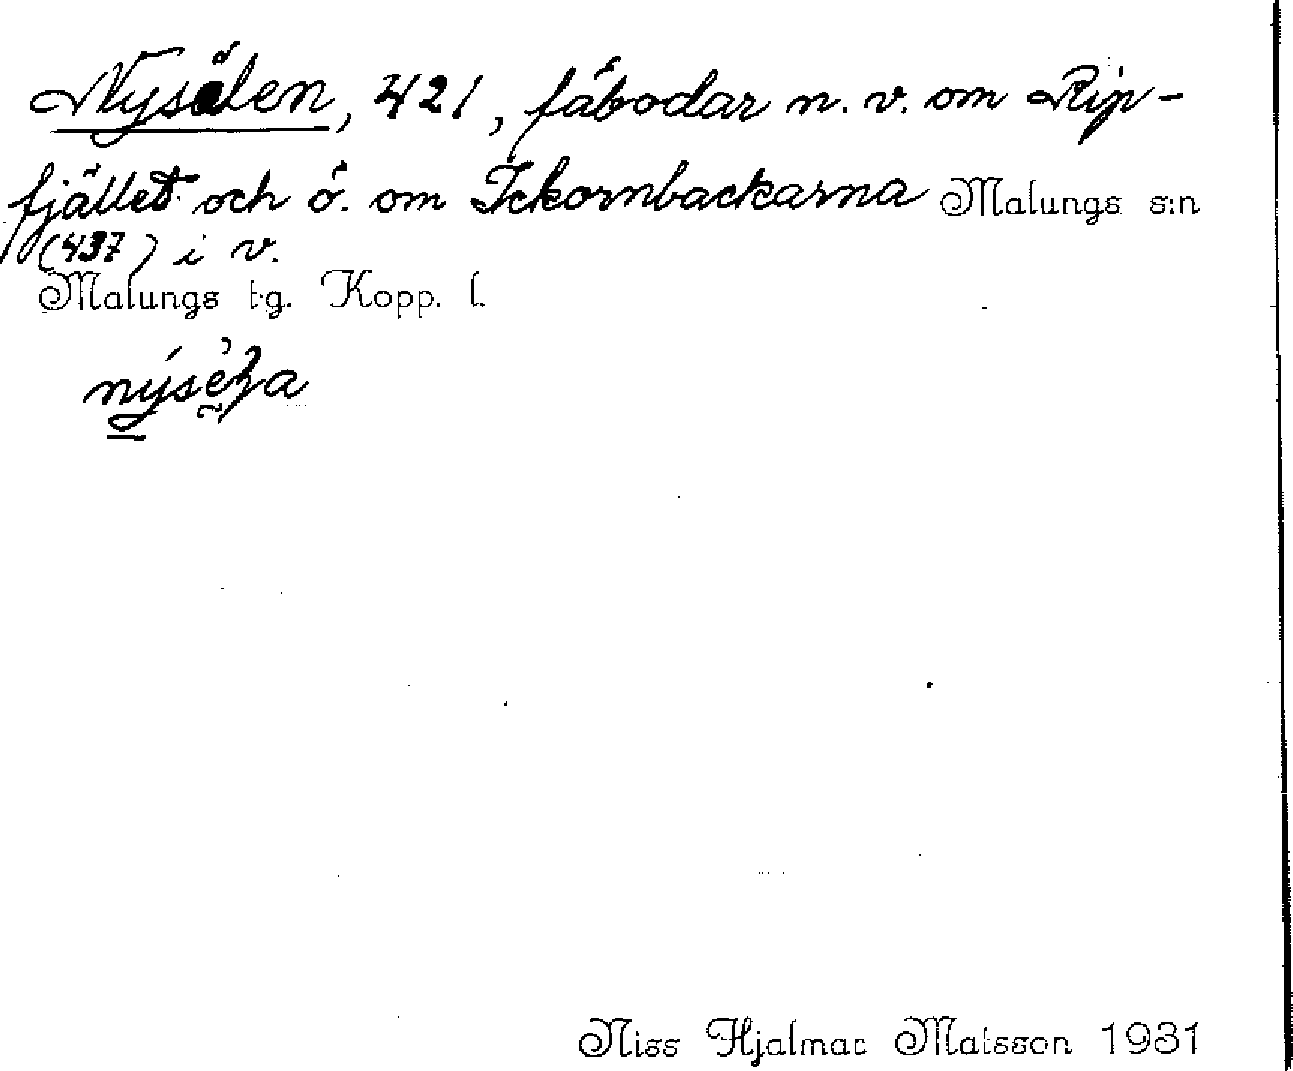 Nysälen, 421, fäbodar n. v. om Rip-
fjället och ö. om Ickornbackarna Malungs s:n
(437) i v.
Malungs tg. Kopp. l.
Niss Hjalmar Matsson 1931